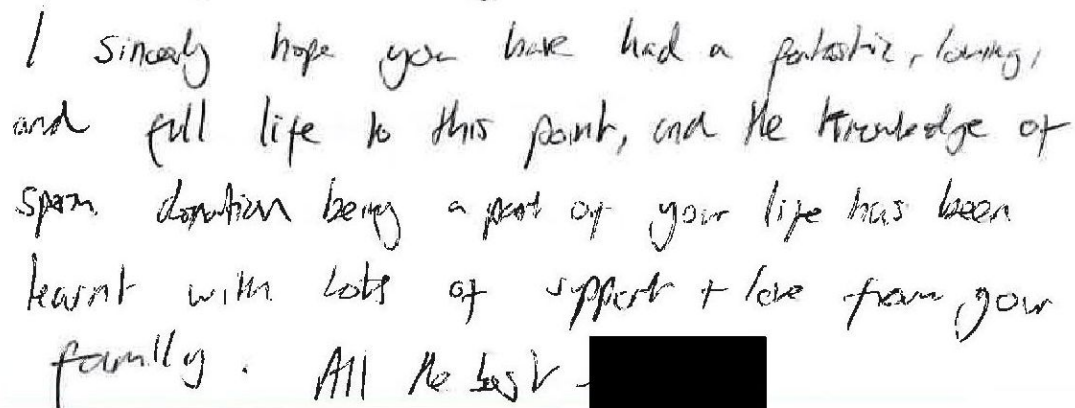 I sincerely hope you have had a fantastic, loving,
and full life to this point, and the knowledge of
sperm donation being a part of your life has been
learnt with lots of support + love from your
family. All the best -